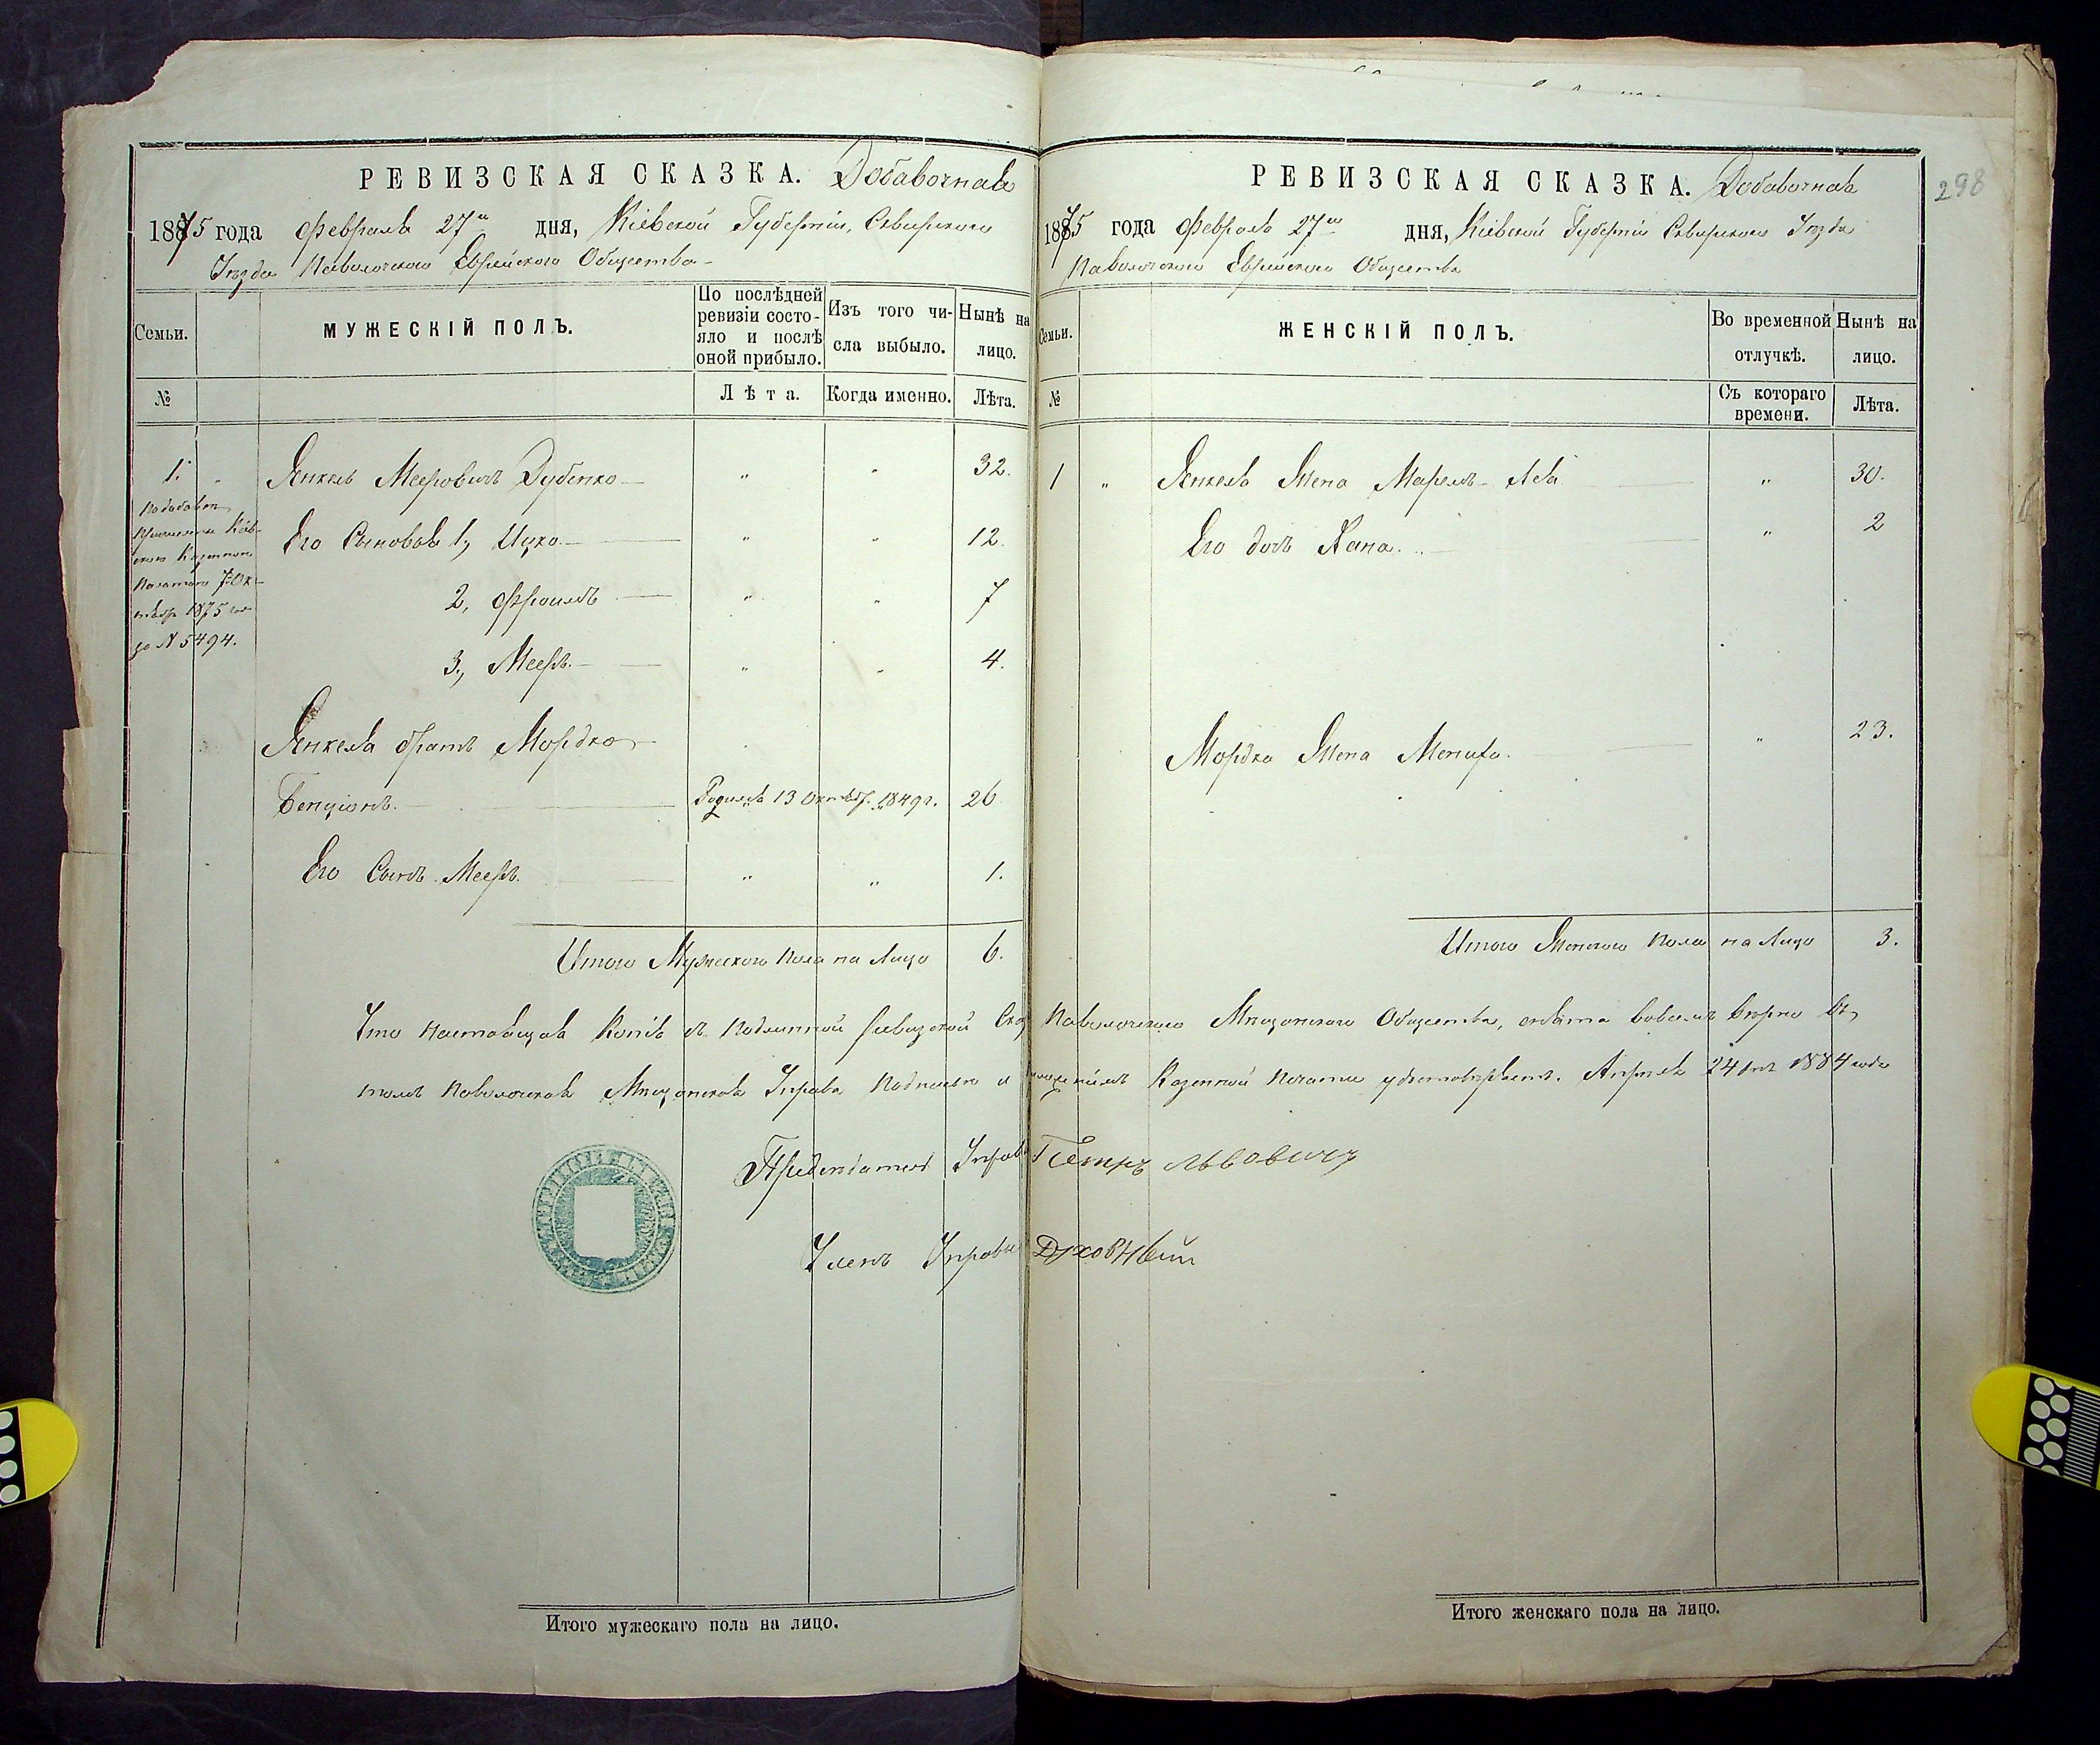 РЕВИЗСКАЯ СКАЗКА. Добавочная
1875 года Февраля 27го дня, Кіевской Губерніи, Сквирского
Уѣзда Паволочского Еврейского Общества
Семьи.
МУЖЕСКІЙ ПОЛЪ.
По послѣдней ревизіи состояло и послѣ оной прибыло.
Изъ того числа выбыло.
Нынѣ на лицо.
№
Лѣта.
Когда именно.
Лѣта.
1. " Янкель Мееровичъ Дубенко " " 32.
Казенной
Палаты 7 Ок-
тября 1875 года
за № 5494.
Его Сыновья 1, Ицко " " 12.
2, Фроимъ " " 7
3, Мееръ " " 4.
Янкеля братъ Мордко
Бенціонъ. Родился 13 Октяб. 1849 г. 26
Его Сынъ Мееръ. " " 1.
Итого Мужеского пола на лицо 6.
Итого мужескаго пола на лицо.
РЕВИЗСКАЯ СКАЗКА. Добавочная
298
1875 года Февраля 27го дня, Кіевской Губерніи Сквирского Уѣзда
Паволочского Еврейского Общества
Семьи.
ЖЕНСКІЙ ПОЛЪ.
Во временной отлучкѣ.
Нынѣ на лицо.
№
Съ котораго времени.
Лѣта.
1 " Янкеля Жена Марьемъ Лея " 30.
Его дочь Хана. " 2
Мордка Жена Мениха. " 23.
Итого Женского пола на лицо 3.
Что настоящая копія съ подлинной ревизской Сказ Паволочского Мѣщанского Общества, снята вовсемъ вѣрно въ
томъ Паволочская Мѣщанская Управа подписью и приложеніемъ Казенной печати удостовѣряетъ. Апрѣля 24 дня 1884 года
Предсѣдатель Управы Петръ Львовичъ
Членъ Управы Духовный
Итого женскаго пола на лицо.